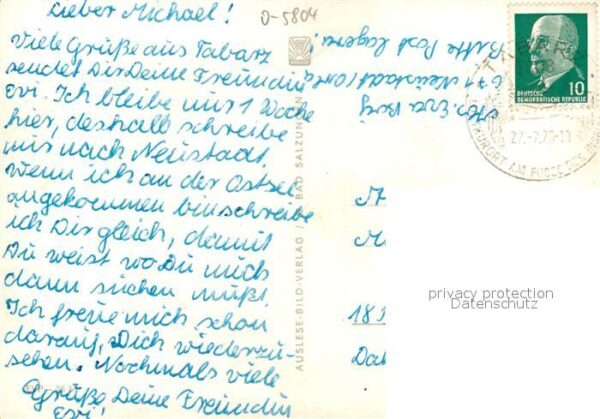 Lieber Michael!
Viele Grüße aus Tabarz
sendet Dir Deine Freundin
Evi. Ich bleibe nur 1 Woche
hier, deshalb schreibe
mir nach Neustadt.
Wenn ich an der Ostsee
angekommen bin schreibe
ich Dir gleich, damit
Du weist wo Du mich
dann suchen mußt.
Ich freue mich schon
darauf, Dich wiederzu-
sehen. Nochmals viele
Grüße Deine Freundin
Evi!
0-5804
Abs. Eva Berg
Neustadt (Orla)
Bitte Post lagern!
AUSLESE-BILD-VERLAG / BAD SALZUNGEN
10
DEUTSCHE
DEMOKRATISCHE REPUBLIK
KURORT AM FUSSE DES
M
189
Da
privacy protection
Datenschutz